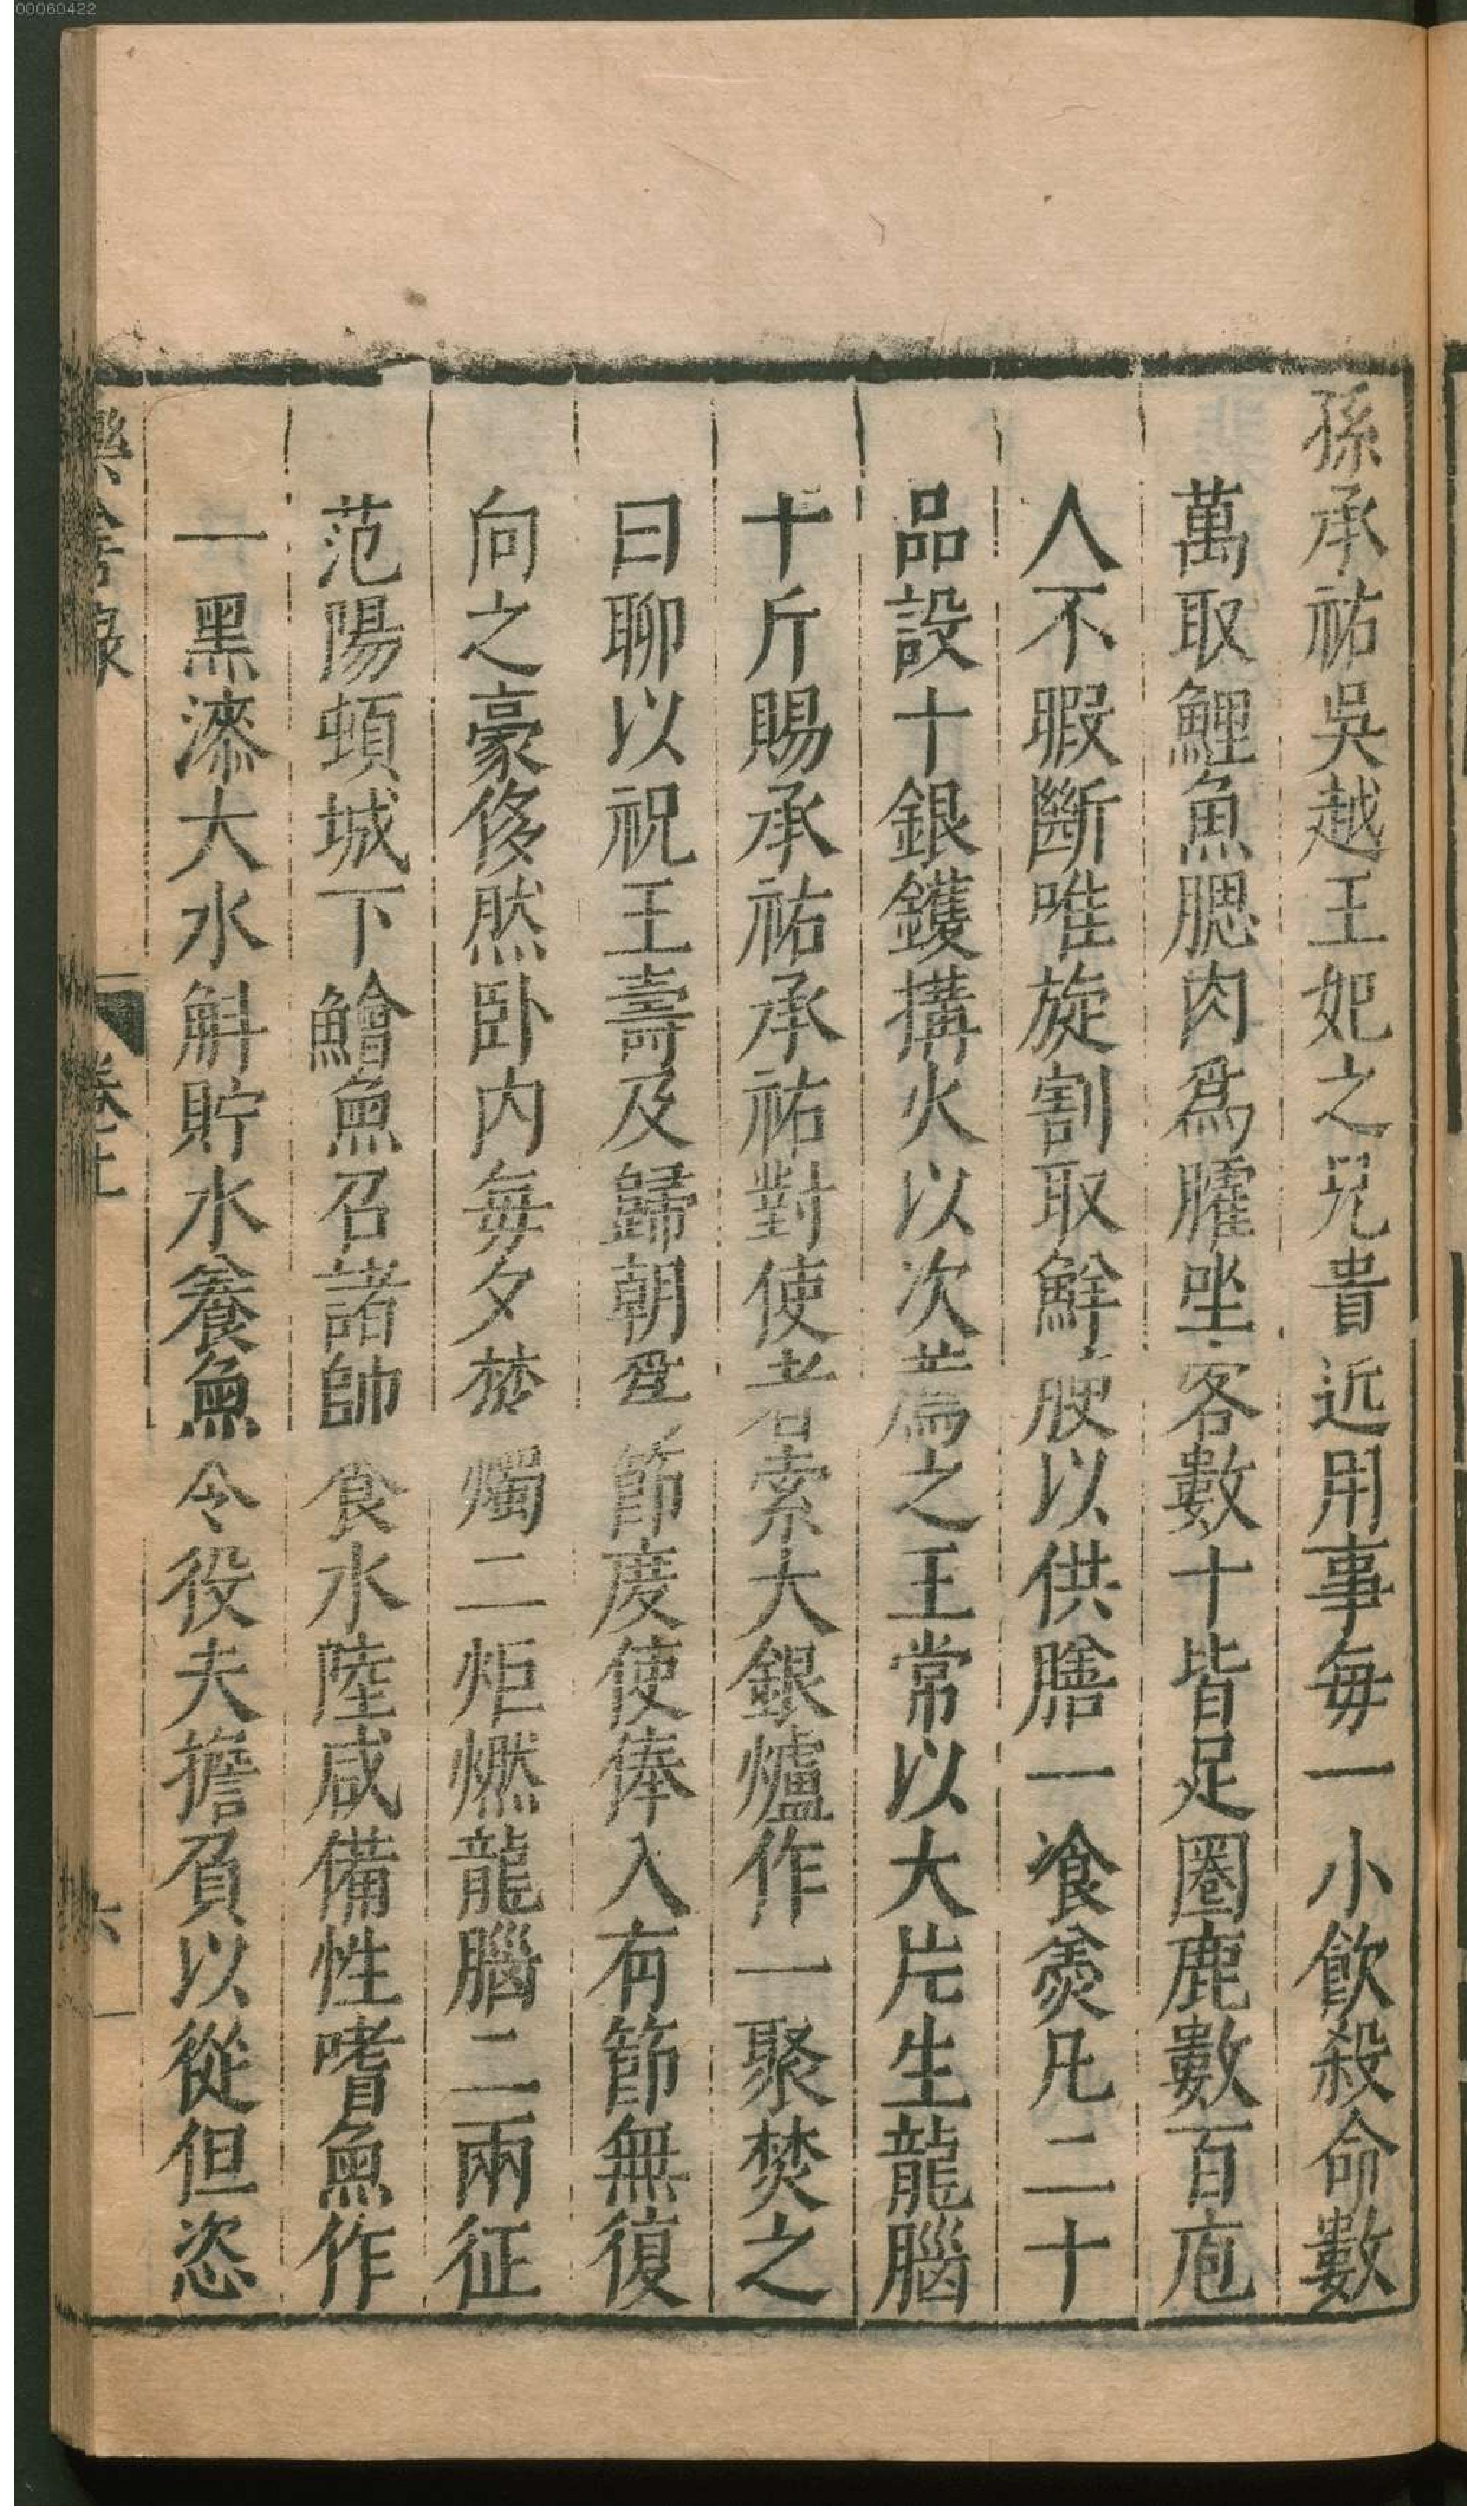 00060422
孫承祐吳越王妃之兄貴近用事每一小飲殺命數
萬取鯉魚腮肉爲臛坐客數十皆足圈鹿數百庖
人不暇斷唯旋割取鮮腴以供膳一飡羨凡二十
品設十銀鑊搆火以次薦之王常以大片生龍腦
十斤賜承祐承祐對使者索大銀爐作一聚焚之
曰聊以祝王壽及歸朝爲節度使俸入有節無復
向之豪侈然卧内毎夕焚燭二炬燃龍腦二兩征
范陽頓城下鱠魚召諸帥食水陸咸備性嗜魚作
一黑漆大水斛貯水養魚令役夫擔負以從但恣
卷上
六